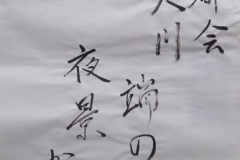 会
川端の
夜景